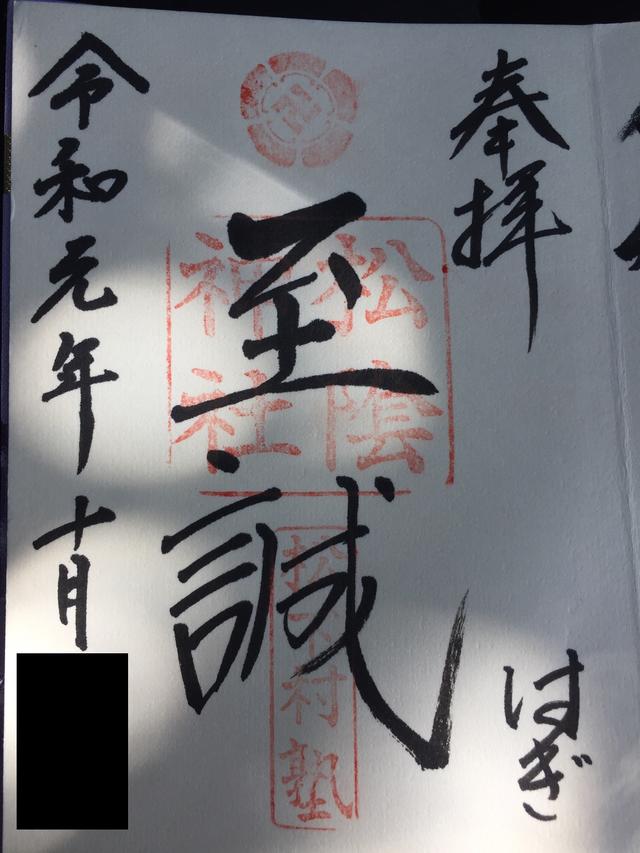 奉拝
はぎ
至誠
松陰
神社
松下村塾
令和元年十月